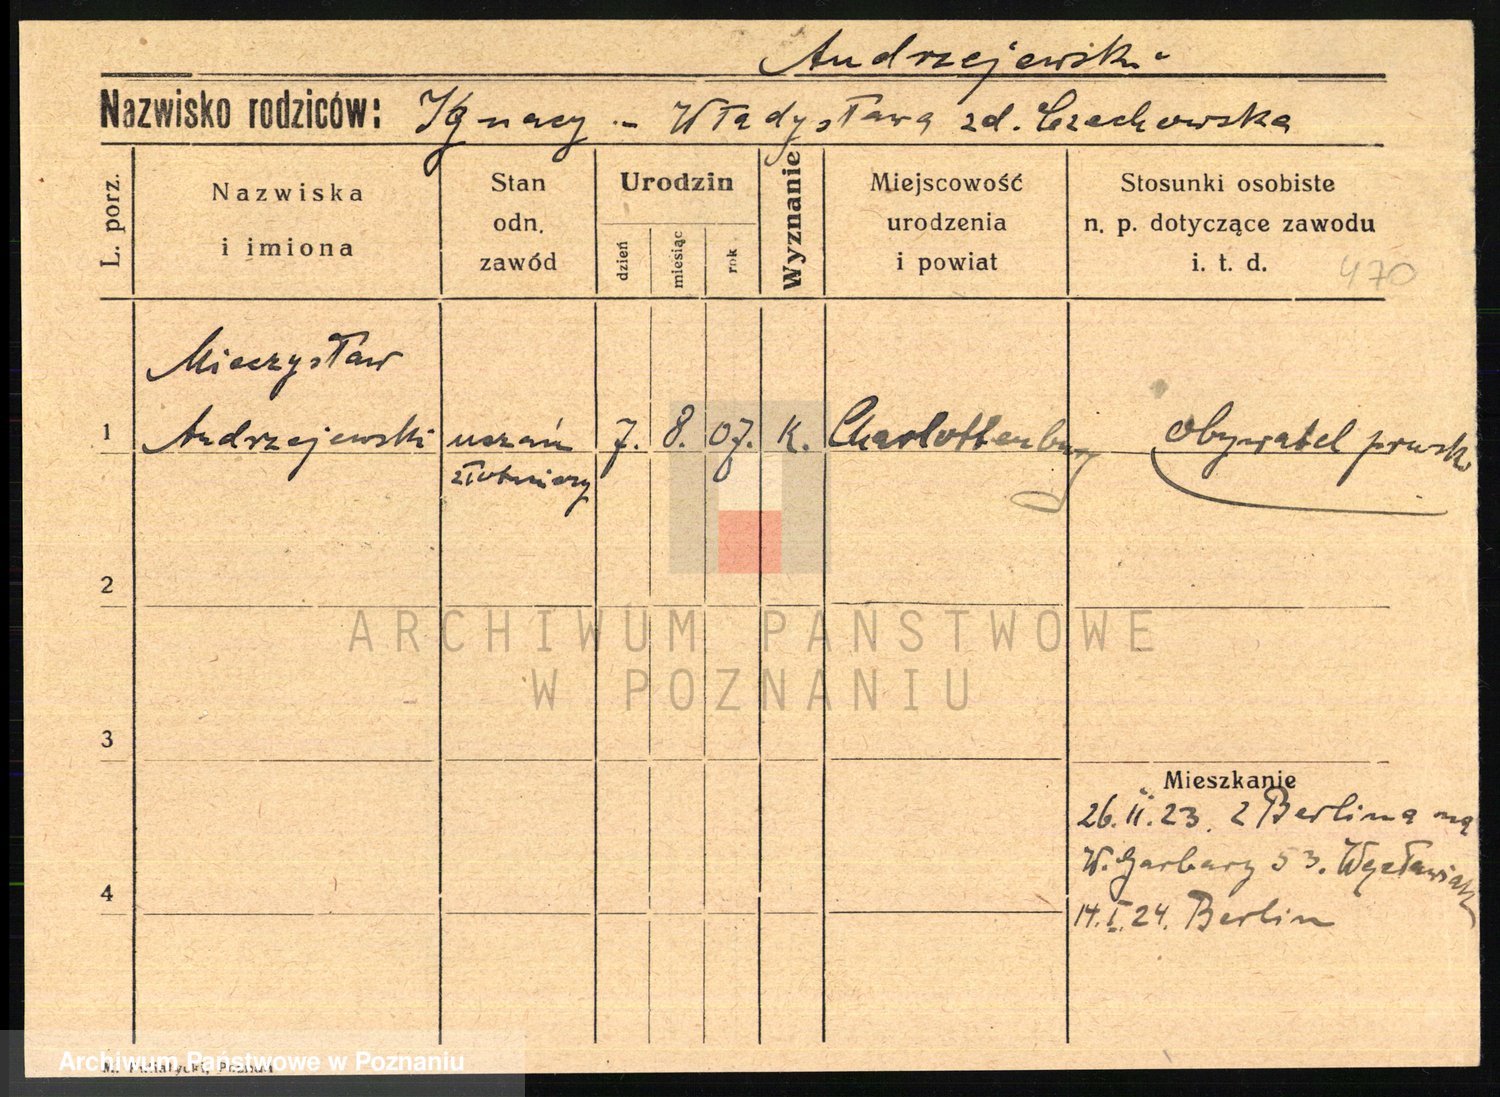 Andrzejewski
Nazwisko rodziców: Ignacy - Władysława zd. Czechowska
L. porz.
Nazwiska
i imiona
Stan
odn.
zawód
Urodzin
dzień
miesiąc
rok
Wyznanie
Miejscowość
urodzenia
i powiat
Stosunki osobiste
n. p. dotyczące zawodu
i. t. d.
470
Mieczysław
1 Andrzejewski uczeń 7. 8. 07. K. Charlottenburg obywatel prusk
złotniczy
2
ARCHIWUM PAŃSTWOWE
W POZNANIU
3
Mieszkanie
26.II.23. z Berlina na
W. Garbary 53.
4
14.I.24. Berlin
Archiwum Państwowe w Poznaniu
Poznań